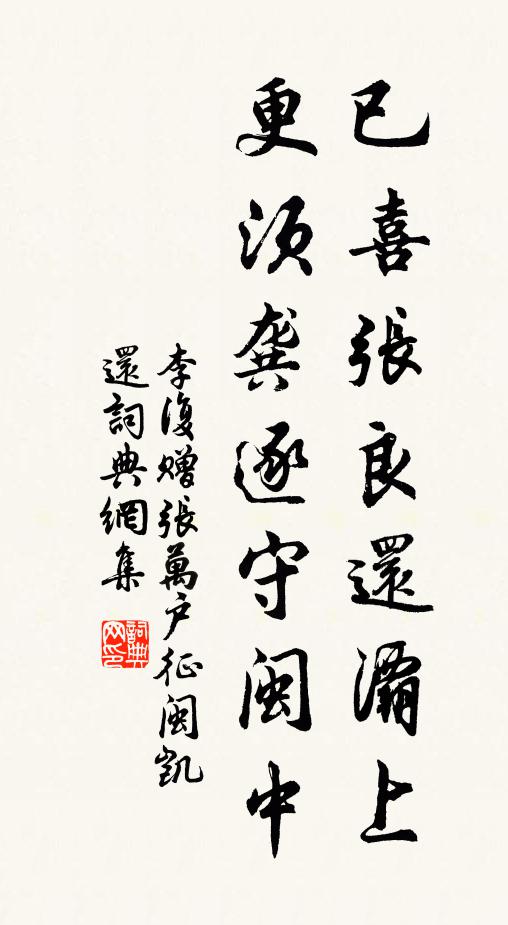 已喜張良還灞上
更須龔遂守閩中
李復贈張萬戶征閩凱
還詞典網集
詞典
网印